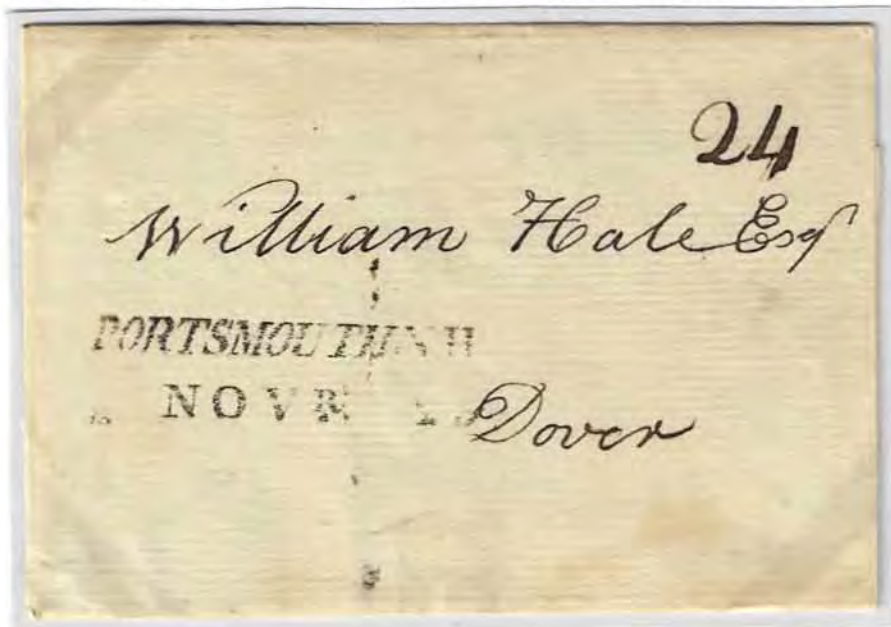 24
William Hale Esqr
PORTSMOUTH N H
NOVR
Dover